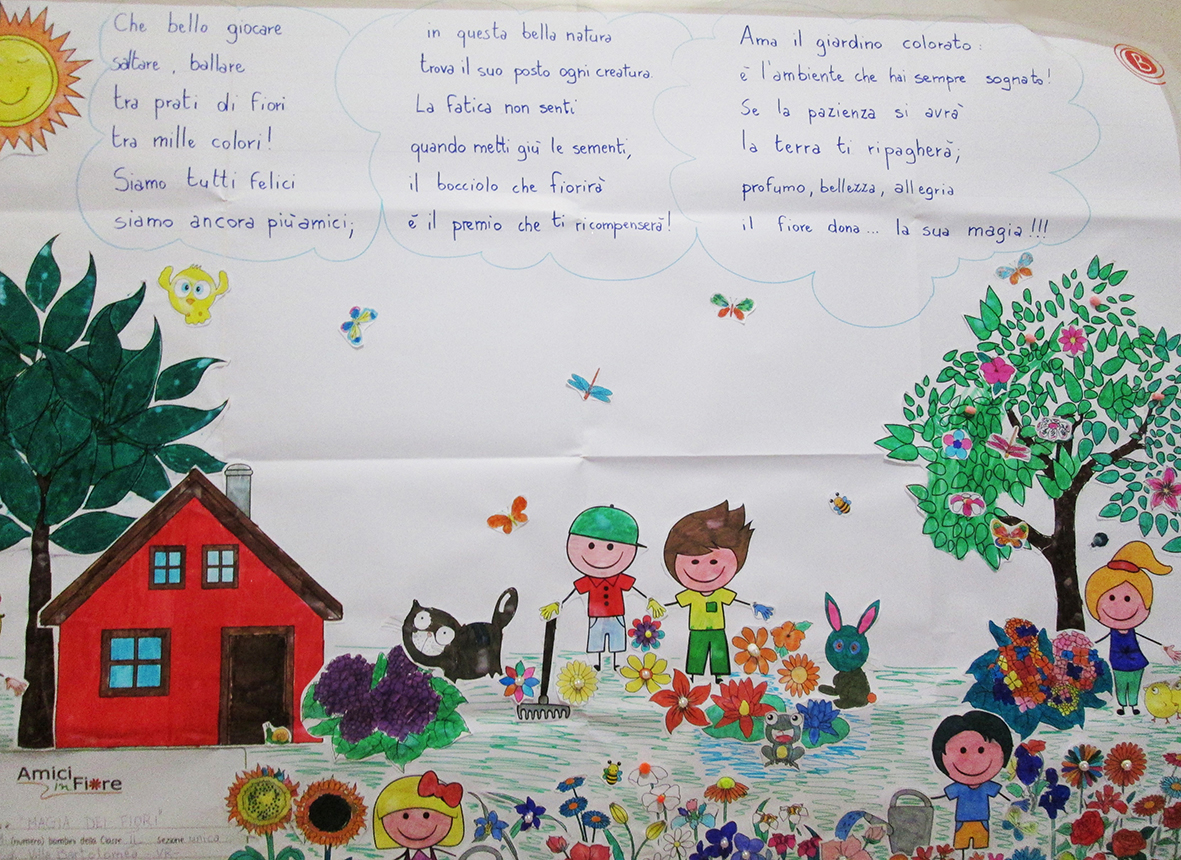 Che bello giocare
saltare, ballare
tra prati di fiori
tra mille colori!
Siamo tutti felici
siamo ancora più amici;
in questa bella natura
trova il suo posto ogni creatura.
La fatica non senti
quando metti giù le sementi,
il bocciolo che fiorirà
è il premio che ti ricompenserà!
Ama il giardino colorato:
è l'ambiente che hai sempre sognato!
Se la pazienza si avrà
la terra ti ripagherà;
profumo, bellezza, allegria
il fiore dona... la sua magia!!!
B
Amici
in Fiore
"MAGIA DEI FIORI"
(numero) bambini della Classe Sezione unica
Villa Bartolomea VR